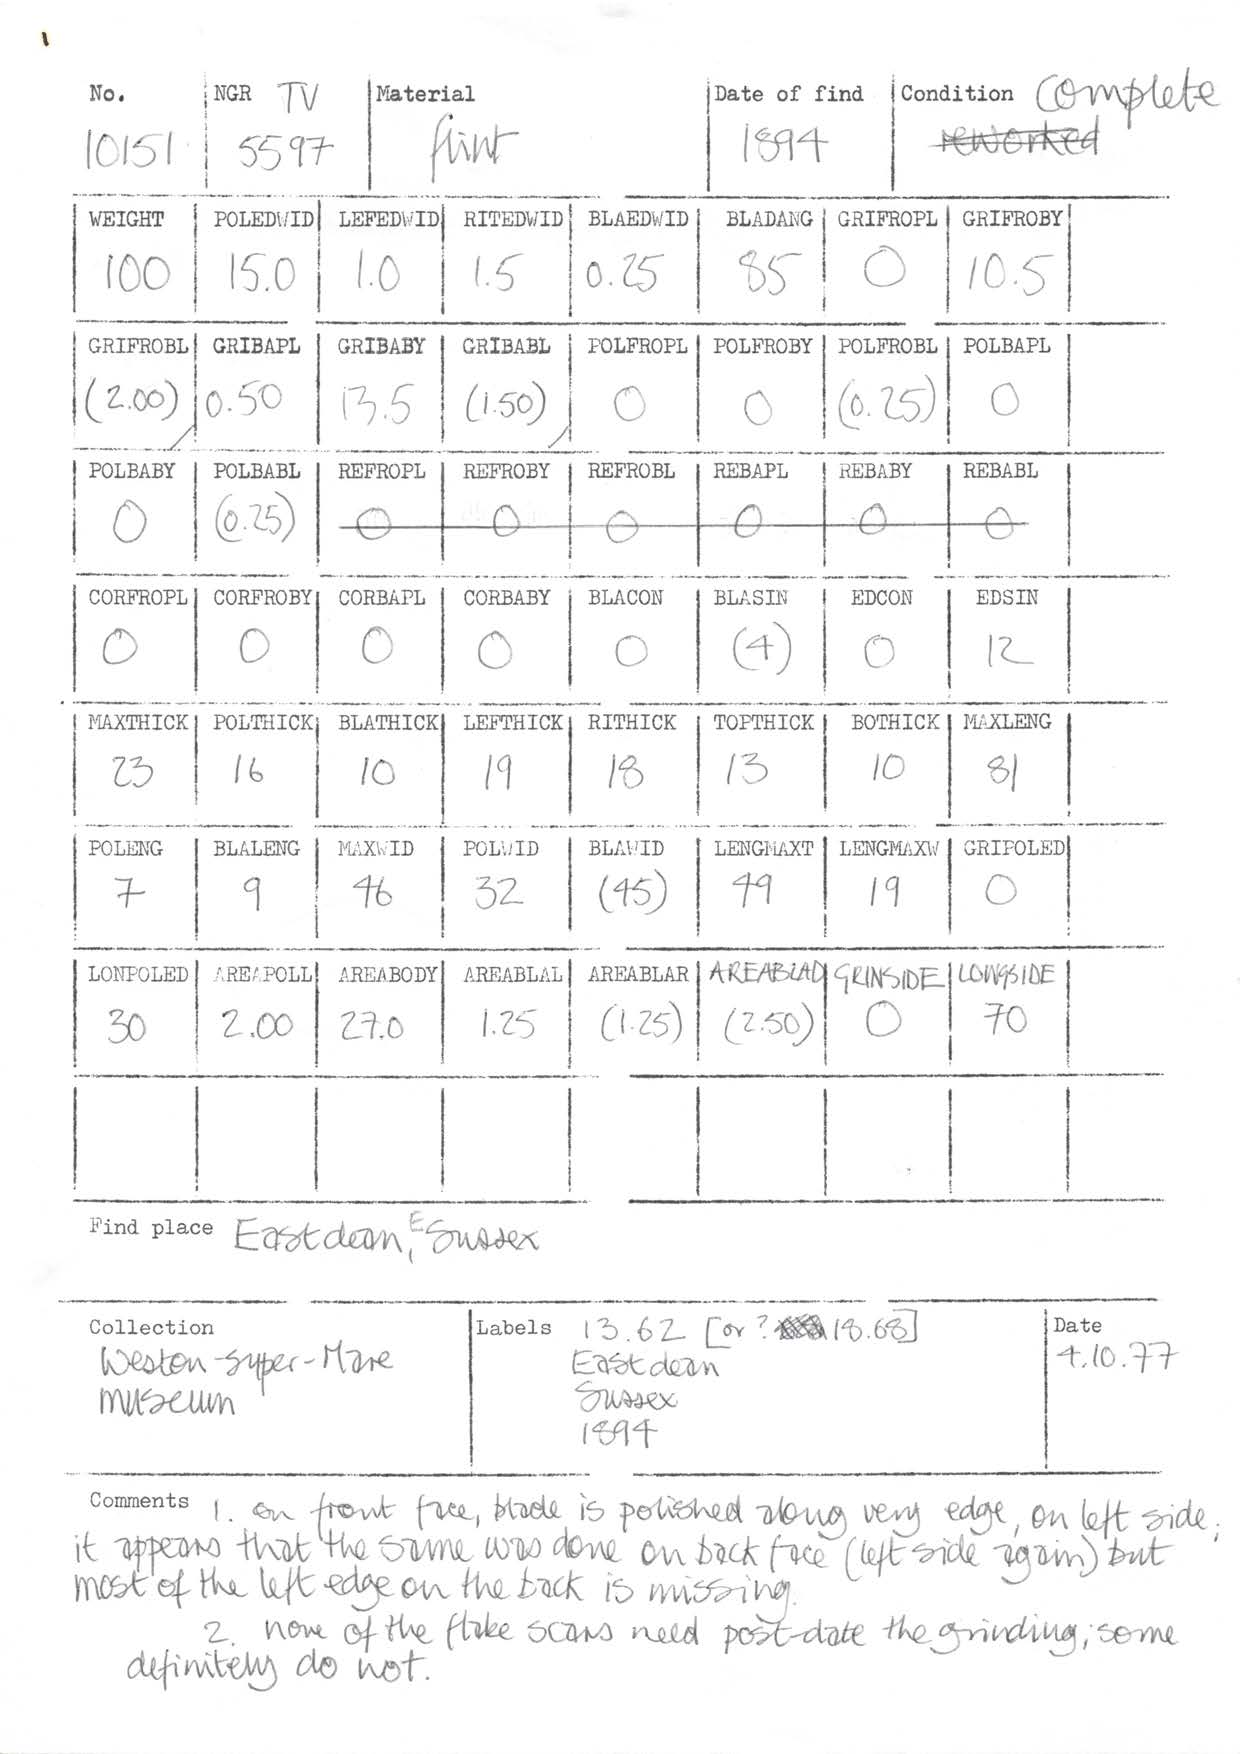 No. NGR TV Material Date of find Condition complete
10151 5597 flint 1894 reworked
WEIGHT POLEDWID LEFEDWID RITEDWID BLAEDWID BLADANG GRIFROPL GRIFROBY
100 15.0 1.0 1.5 0.25 85 0 10.5
GRIFROBL GRIBAPL GRIBABY GRIBABL POLFROPL POLFROBY POLFROBL POLBAPL
(2.00) 0.50 13.5 (1.50) 0 0 (0.25) 0
POLBABY POLBABL REFROPL REFROBY REFROBL REBAPL REBABY REBABL
0 (0.25) 0 0 0 0 0 0
CORFROPL CORFROBY CORBAPL CORBABY BLACON BLASIN EDCON EDSIN
0 0 0 0 0 (4) 0 12
MAXTHICK POLTHICK BLATHICK LEFTHICK RITHICK TOPTHICK BOTHICK MAXLENG
23 16 10 19 18 13 10 81
POLENG BLALENG MAXWID POLWID BLAWID LENGMAXT LENGMAXW GRIPOLED
7 9 46 32 (45) 49 19 0
LONPOLED AREAPOLL AREABODY AREABLAL AREABLAR AREABLAD GRINSIDE LONGSIDE
30 2.00 27.0 1.25 (1.25) (2.50) 0 70
Find place Eastdean, E Sussex
Collection Labels 13.62 [or ? 18.68] Date
Weston-super-Mare Eastdean 4.10.77
museum Sussex
1894
Comments 1. on front face, blade is polished along very edge, on left side;
it appears that the same was done on back face (left side again) but
most of the left edge on the back is missing.
2. none of the flake scars need post-date the grinding; some
definitely do not.